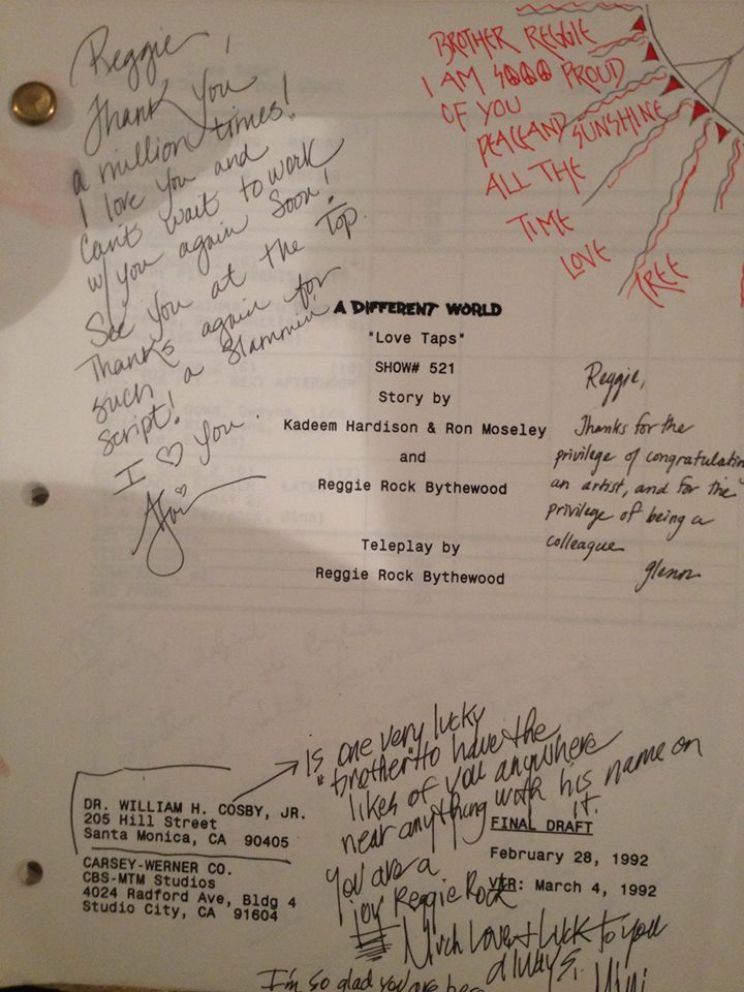 Reggie,
Thank You
a million times!
I love you and
Can't wait to work
w/ you again Soon!
See you at the Top.
Thanks again for
such a Slammin'
Script!
I ♡ You.
BROTHER REGGIE
I AM SOOO PROUD
OF YOU
PEACE AND SUNSHINE
ALL THE
TIME
LOVE
TREE
A DIFFERENT WORLD
"Love Taps"
SHOW# 521
Story by
Kadeem Hardison & Ron Moseley
and
Reggie Rock Bythewood
Teleplay by
Reggie Rock Bythewood
Reggie,
Thanks for the
privilege of congratulatin
an artist, and for the
privilege of being a
colleague
Glenn
DR. WILLIAM H. COSBY, JR.
205 Hill Street
Santa Monica, CA 90405
CARSEY-WERNER CO.
CBS-MTM Studios
4024 Radford Ave, Bldg 4
Studio City, CA 91604
Is one very lucky
"brother" to have the
likes of you anywhere
near anything with his name on
it.
You are a
joy Reggie Rock
Much Love & Luck to you
always.
FINAL DRAFT
February 28, 1992
VER: March 4, 1992
I'm so glad you are